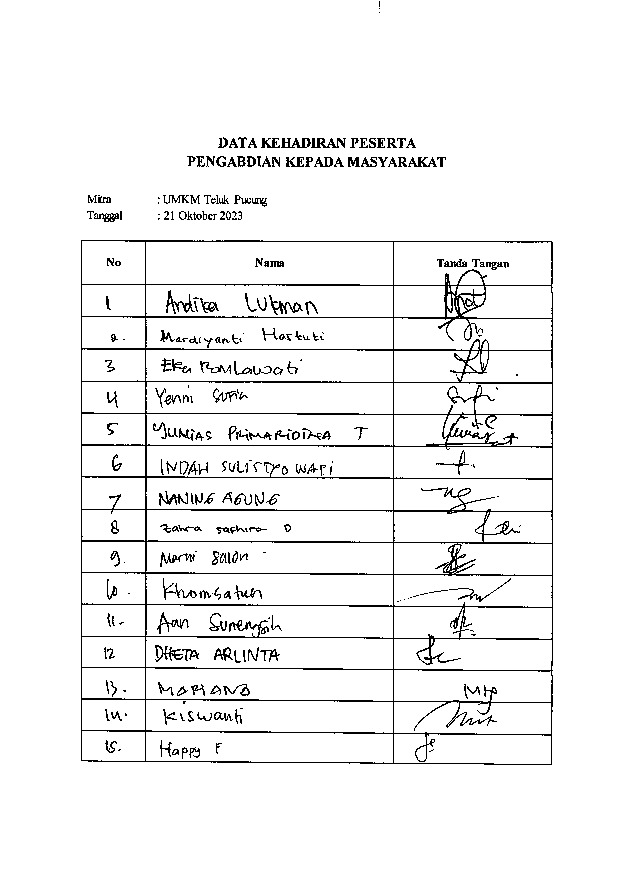 DATA KEHADIRAN PESERTA
PENGABDIAN KEPADA MASYARAKAT
Mitra : UMKM Teluk Pucung
Tanggal : 21 Oktober 2023
No Nama Tanda Tangan
1 Andika Lukman
2. Mardiyanti Hastuti
3 Eka Romlawati
4 Yenni
5 YUNIAS T
6 INDAH SULISTYOWATI
7 NANING AGUNG
8 Zahra D
9. Marni Salon
10. Khomsatun
11. Aan
12 DHETA ARLINTA
13. MARIANA
14. Kiswanti
15. Happy F